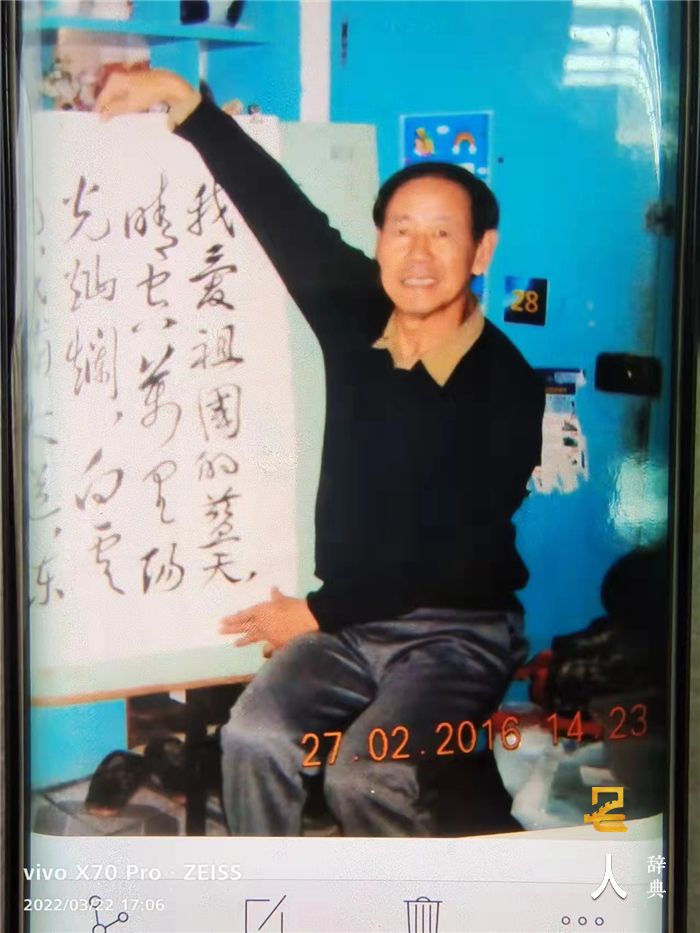 我愛祖國的蓝天,
晴空萬里陽
光灿爛,白雲
我鋪大道,东
28
27.02.2016 14 23
vivo X70 Pro · ZEISS
2022/03/22 17:06
人
辞典